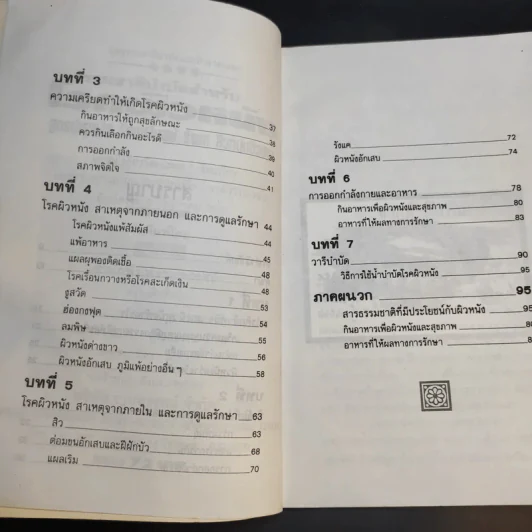 บทที่ 3
ความเครียดทำให้เกิดโรคผิวหนัง 37
กินอาหารให้ถูกสุขลักษณะ 38
ควรกินเลือกกินอะไรดี 39
การออกกำลัง 40
สภาพจิตใจ 41
บทที่ 4
โรคผิวหนัง สาเหตุจากภายนอก และการดูแลรักษา 44
โรคผิวหนังแพ้สัมผัส 44
แพ้อาหาร 45
แผลผุพองติดเชื้อ 48
โรคเรื้อนกวางหรือโรคสะเก็ดเงิน 48
งูสวัด 53
ฮ่องกงฟุต 54
ลมพิษ 55
ผิวหนังด่างขาว 56
ผิวหนังอักเสบ ภูมิแพ้อย่างอื่น ๆ 58
บทที่ 5
โรคผิวหนัง สาเหตุจากภายใน และการดูแลรักษา 63
สิว 63
ต่อมขนอักเสบและฝีฝักบัว 68
แผลเริม 70
รังแค 72
ผิวหนังอักเสบ 74
บทที่ 6
การออกกำลังกายและอาหาร 78
กินอาหารเพื่อผิวหนังและสุขภาพ 80
อาหารที่ให้ผลทางการรักษา 83
บทที่ 7
วารีบำบัด 90
วิธีการใช้น้ำบำบัดโรคผิวหนัง 92
ภาคผนวก 95
สารธรรมชาติที่มีประโยชน์กับผิวหนัง 95
กินอาหารเพื่อผิวหนังและสุขภาพ
อาหารที่ให้ผลทางการรักษา